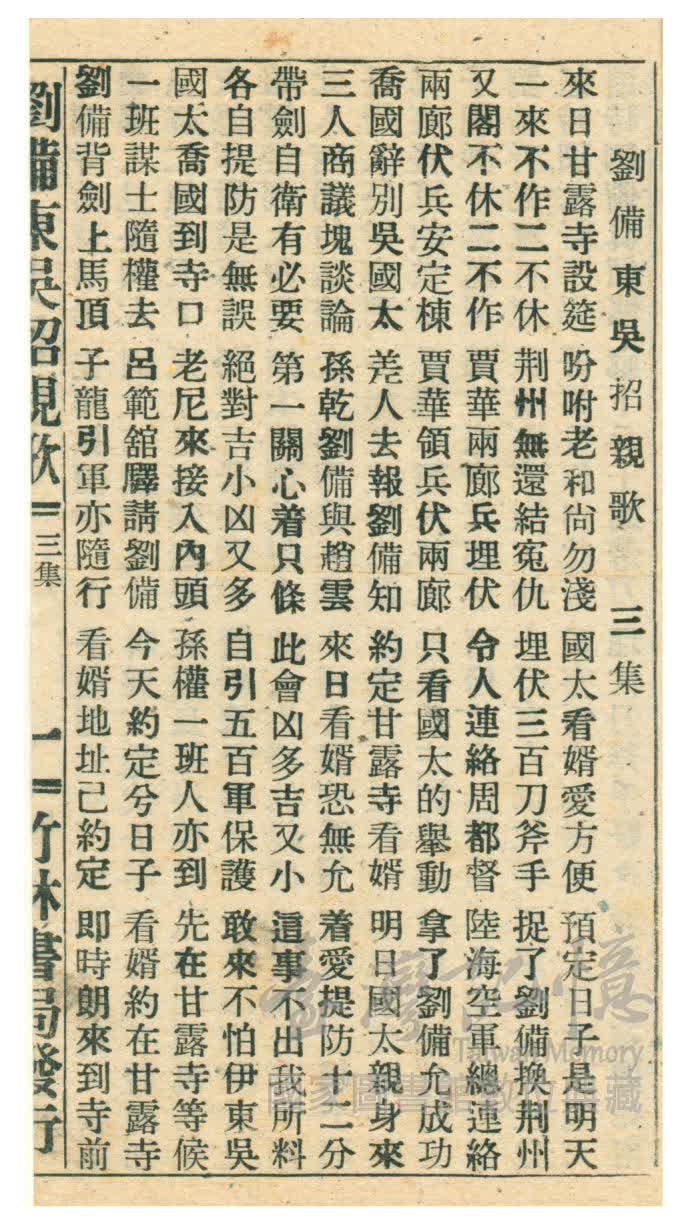 劉備東吳招親歌 三集
來日甘露寺設筵 吩咐老和尚勿淺 國太看婿愛方便 預定日子是明天
一來不作二不休 荆州無還結寃仇 埋伏三百刀斧手 捉了劉備換荆州
又閣不休二不作 賈華兩廊兵埋伏 令人連絡周都督 陸海空軍總連絡
兩廊伏兵安定棟 賈華領兵伏兩廊 只看國太的舉動 拿了劉備允成功
喬國辭別吳國太 差人去報劉備知 約定甘露寺看婿 明日國太親身來
三人商議塊談論 孫乾劉備與趙雲 來日看婿恐無允 着愛提防十二分
帶劍自衛有必要 第一關心着只條 此會凶多吉又小 這事不出我所料
各自提防是無誤 絕對吉小凶又多 自引五百軍保護 敢來不怕伊東吳
國太喬國到寺口 老尼來接入內頭 孫權一班人亦到 先在甘露寺等候
一班謀士隨權去 呂範舘驛請劉備 今天約定兮日子 看婿約在甘露寺
劉備背劍上馬頂 子龍引軍亦隨行 看婿地址己約定 即時朗來到寺前
劉備東吳招親歌 三集 一 竹林書局發行
臺灣記憶
Taiwan Memory
國家圖書館數位典藏